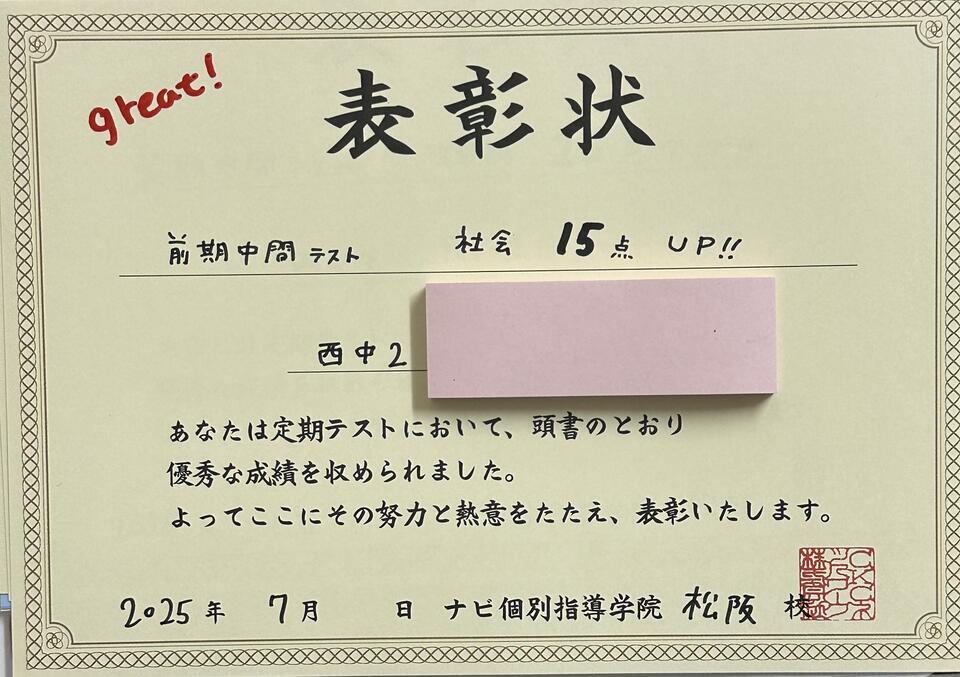 great!
表彰状
前期中間テスト 社会 15点 UP!!
西中2
あなたは定期テストにおいて、頭書のとおり
優秀な成績を収められました。
よってここにその努力と熱意をたたえ、表彰いたします。
2025年 7月 日 ナビ個別指導学院 松阪 校